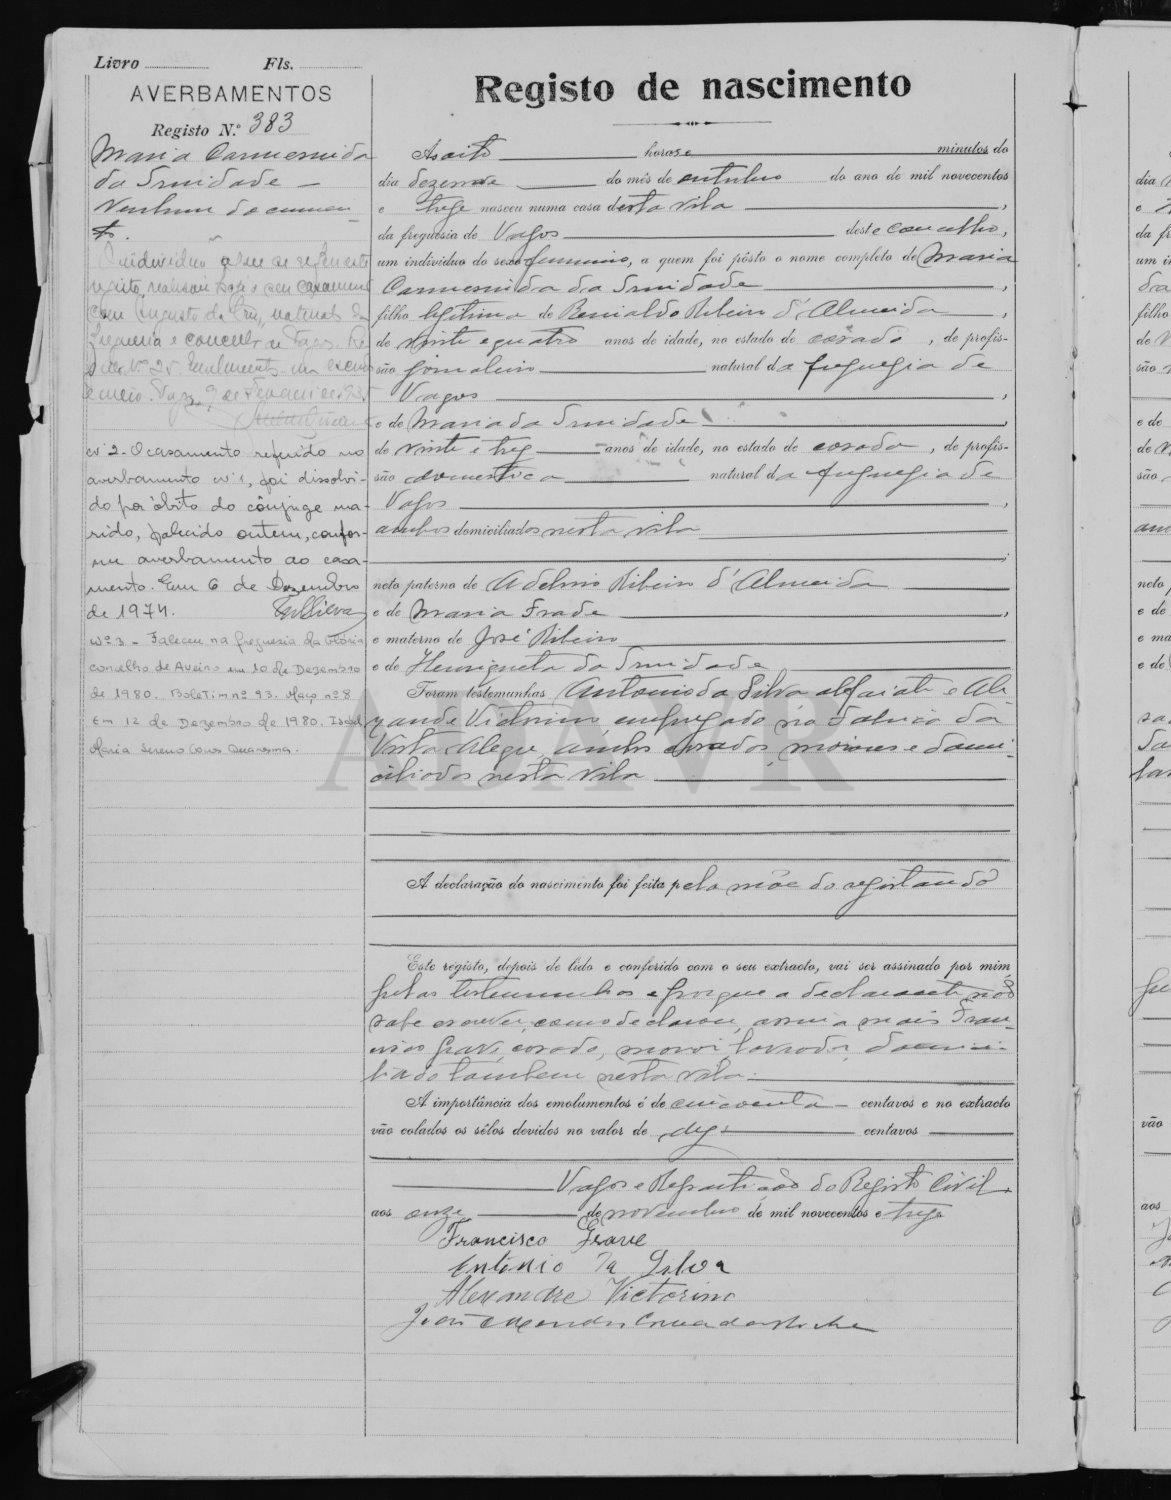 Livro Fls.
AVERBAMENTOS
Registo N.º 383
Maria Carmesinda
da Trindade —
Nenhum documen-
to.
O individuo a que se refere este
registo, realisou hoje o seu casamento
com Augusto da Cruz, natural da
freguesia e concelho de Vagos.
nº 25. Emolumento um escudo
e meio. Vagos, 9 de
nº 2 - O casamento referido no
averbamento nº 1, foi dissolvi-
do por óbito do cônjuge ma-
rido, falecido ontem, confor-
me averbamento ao casa-
mento. Em 6 de Dezembro
de 1974.
Nº 3 - Faleceu na freguesia da Glória
concelho de Aveiro em 10 de Dezembro
de 1980. Boletim nº 93. Maço nº 8
Em 12 de Dezembro de 1980. Isabel
Maria Sereno
Registo de nascimento
Ás oito horas e minutos do
dia dezenove do mês de outubro do ano de mil novecentos
e treze nasceu numa casa desta vila ,
da freguesia de Vagos deste concelho,
um individuo do sexo femenino, a quem foi pôsto o nome completo de Maria
Carmesinda da Trindade ,
filho legitima de Benialdo Ribeiro d'Almeida ,
de vinte e quatro anos de idade, no estado de casado , de profis-
são jornaleiro natural da freguezia de
Vagos ,
e de Maria da Trindade ,
de vinte e trez anos de idade, no estado de casada , de profis-
são domestica natural da freguezia de
Vagos ,
ambos domiciliados nesta vila
;
neto paterno de Adelino Ribeiro d'Almeida
e de Maria Frade ,
e materno de José Ribeiro
e de Henriqueta da Trindade
Foram testemunhas Antonio da Silva alfaiate e Ale
xandre Victorino empregado na Fabrica da
Vista Alegre ambos casados, maiores e domi-
ciliados nesta vila
A declaração do nascimento foi feita pela mãe do registando
Este registo, depois de lido e conferido com o seu extracto, vai ser assinado por mim,
pelas testemunhas e porque a declarante não
sabe escrever, como declarou, assina mais Fran-
cisco Grave, casado, maior, lavrador, domici-
liado tambem nesta vila.
A importância dos emolumentos é de cincoenta — centavos e no extracto
vão colados os sêlos devidos no valor de dez centavos
Vagos e Repartição do Registo Civil,
aos onze de novembro de mil novecentos e treze
Francisco Grave
Antonio da Silva
Alexandre Victorino
ADAVR